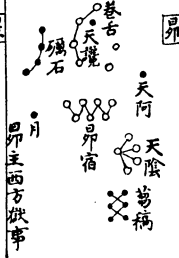 昴
卷舌
天讒
礪石
天阿
月
昴宿
天陰
蒭稿
昴主西方獄事